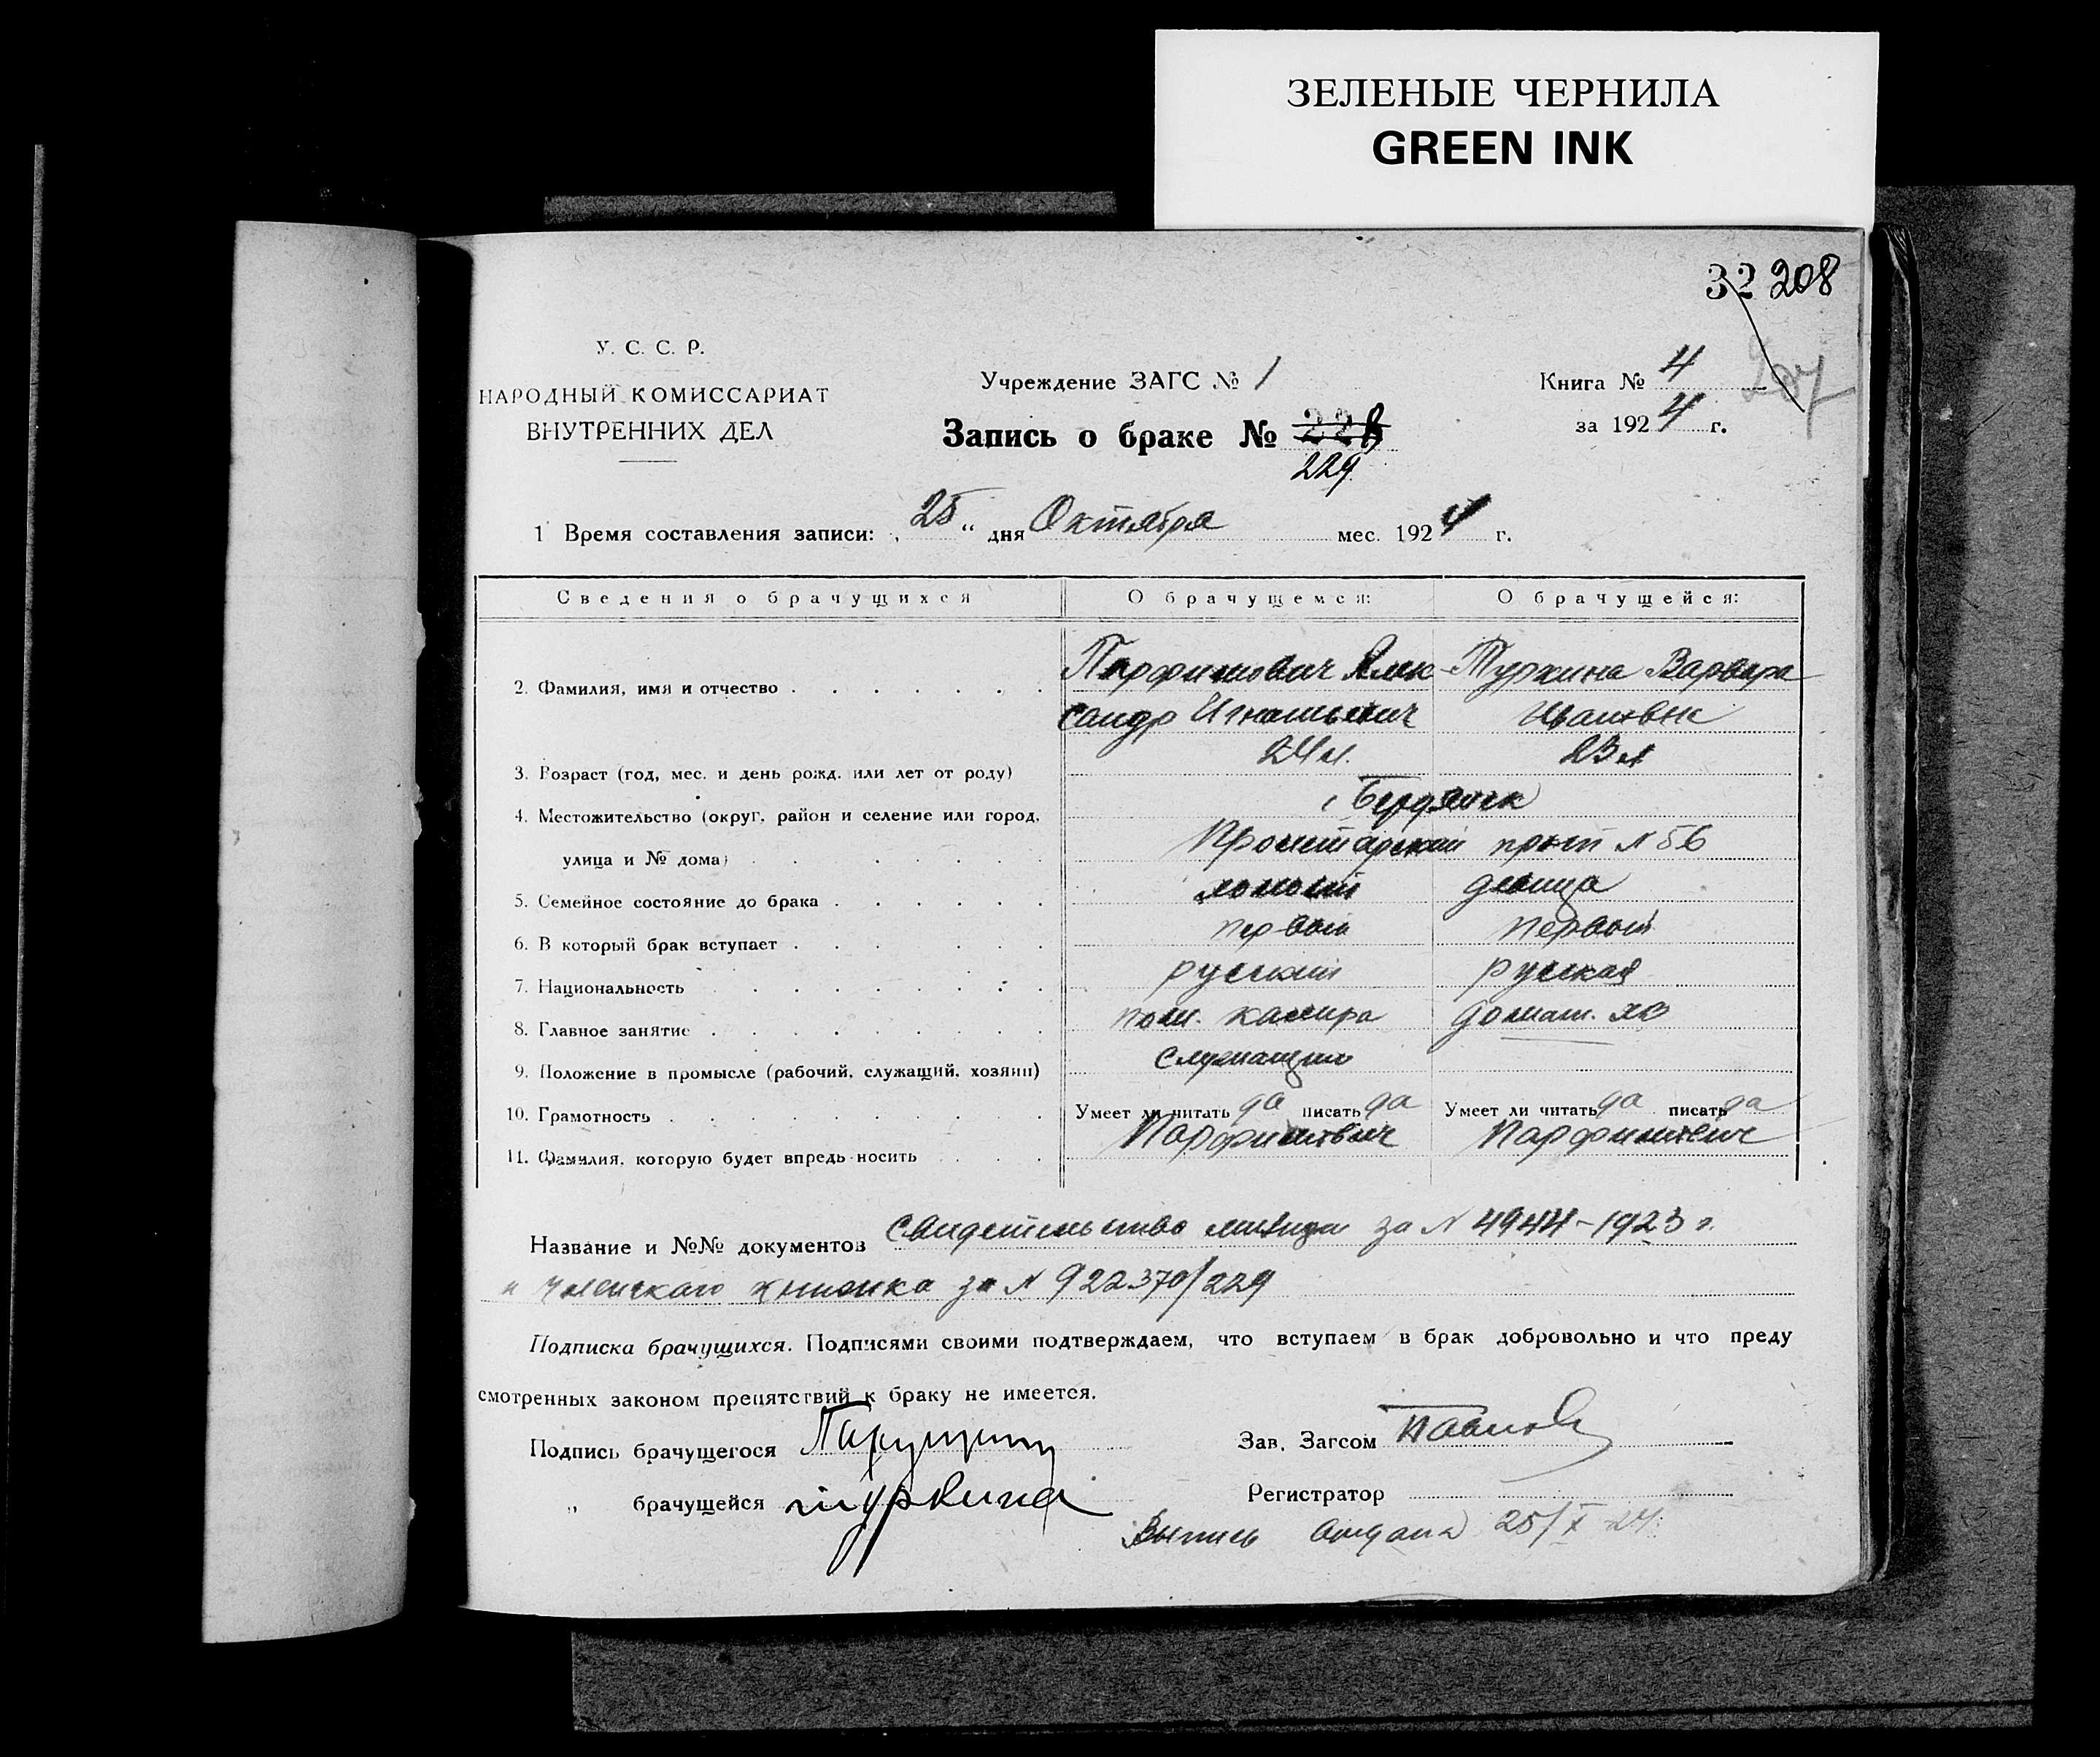 ЗЕЛЕНЫЕ ЧЕРНИЛА
GREEN INK
32 208
207
У. С. С. Р.
НАРОДНЫЙ КОМИССАРИАТ
ВНУТРЕННИХ ДЕЛ
Учреждение ЗАГС № 1
Запись о браке № 228
229
Книга № 4
за 1924 г.
1 Время составления записи: „ 25 “ дня Октября мес. 1924 г.
Сведения о брачущихся О брачущемся: О брачущейся:
2. Фамилия, имя и отчество Парфимович Алек- Туркина Варвара
сандр Игнатьевич Ивановна
3. Возраст (год, мес. и день рожд. или лет от роду) 24 л. 23 л
4. Местожительство (округ, район и селение или город, г Бердянск
улица и № дома) Пролетарский просп N 56
5. Семейное состояние до брака холостой девица
6. В который брак вступает первый первый
7. Национальность русский русская
8. Главное занятие пом. кассира домаш. хоз
9. Положение в промысле (рабочий, служащий, хозяин) служащий
10. Грамотность Умеет ли читать да писать да Умеет ли читать да писать да
11. Фамилия, которую будет впредь носить Парфимович Парфимович
Название и №№ документов Свидетельство за N 4944-1923 г.
и членская книжка за N 922370/229
Подписка брачущихся. Подписями своими подтверждаем, что вступаем в брак добровольно и что преду
смотренных законом препятствий к браку не имеется.
Подпись брачущегося
Зав. Загсом Павлов
„ брачущейся Туркина
Регистратор
Выпись выдана 25/X-24